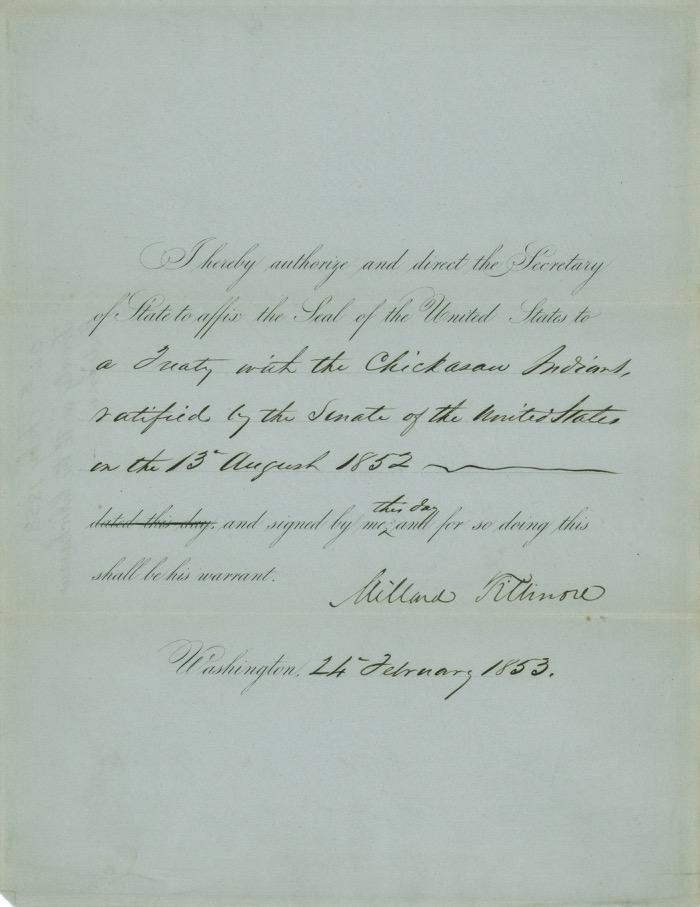 I hereby authorize and direct the Secretary
of State to affix the Seal of the United States to
a Treaty with the Chickasaw Indians,
ratified by the Senate of the United States
on the 13 August 1852
this day
dated this day, and signed by me; and for so doing this
shall be his warrant.
Millard Fillmore
Washington, 24 February 1853.